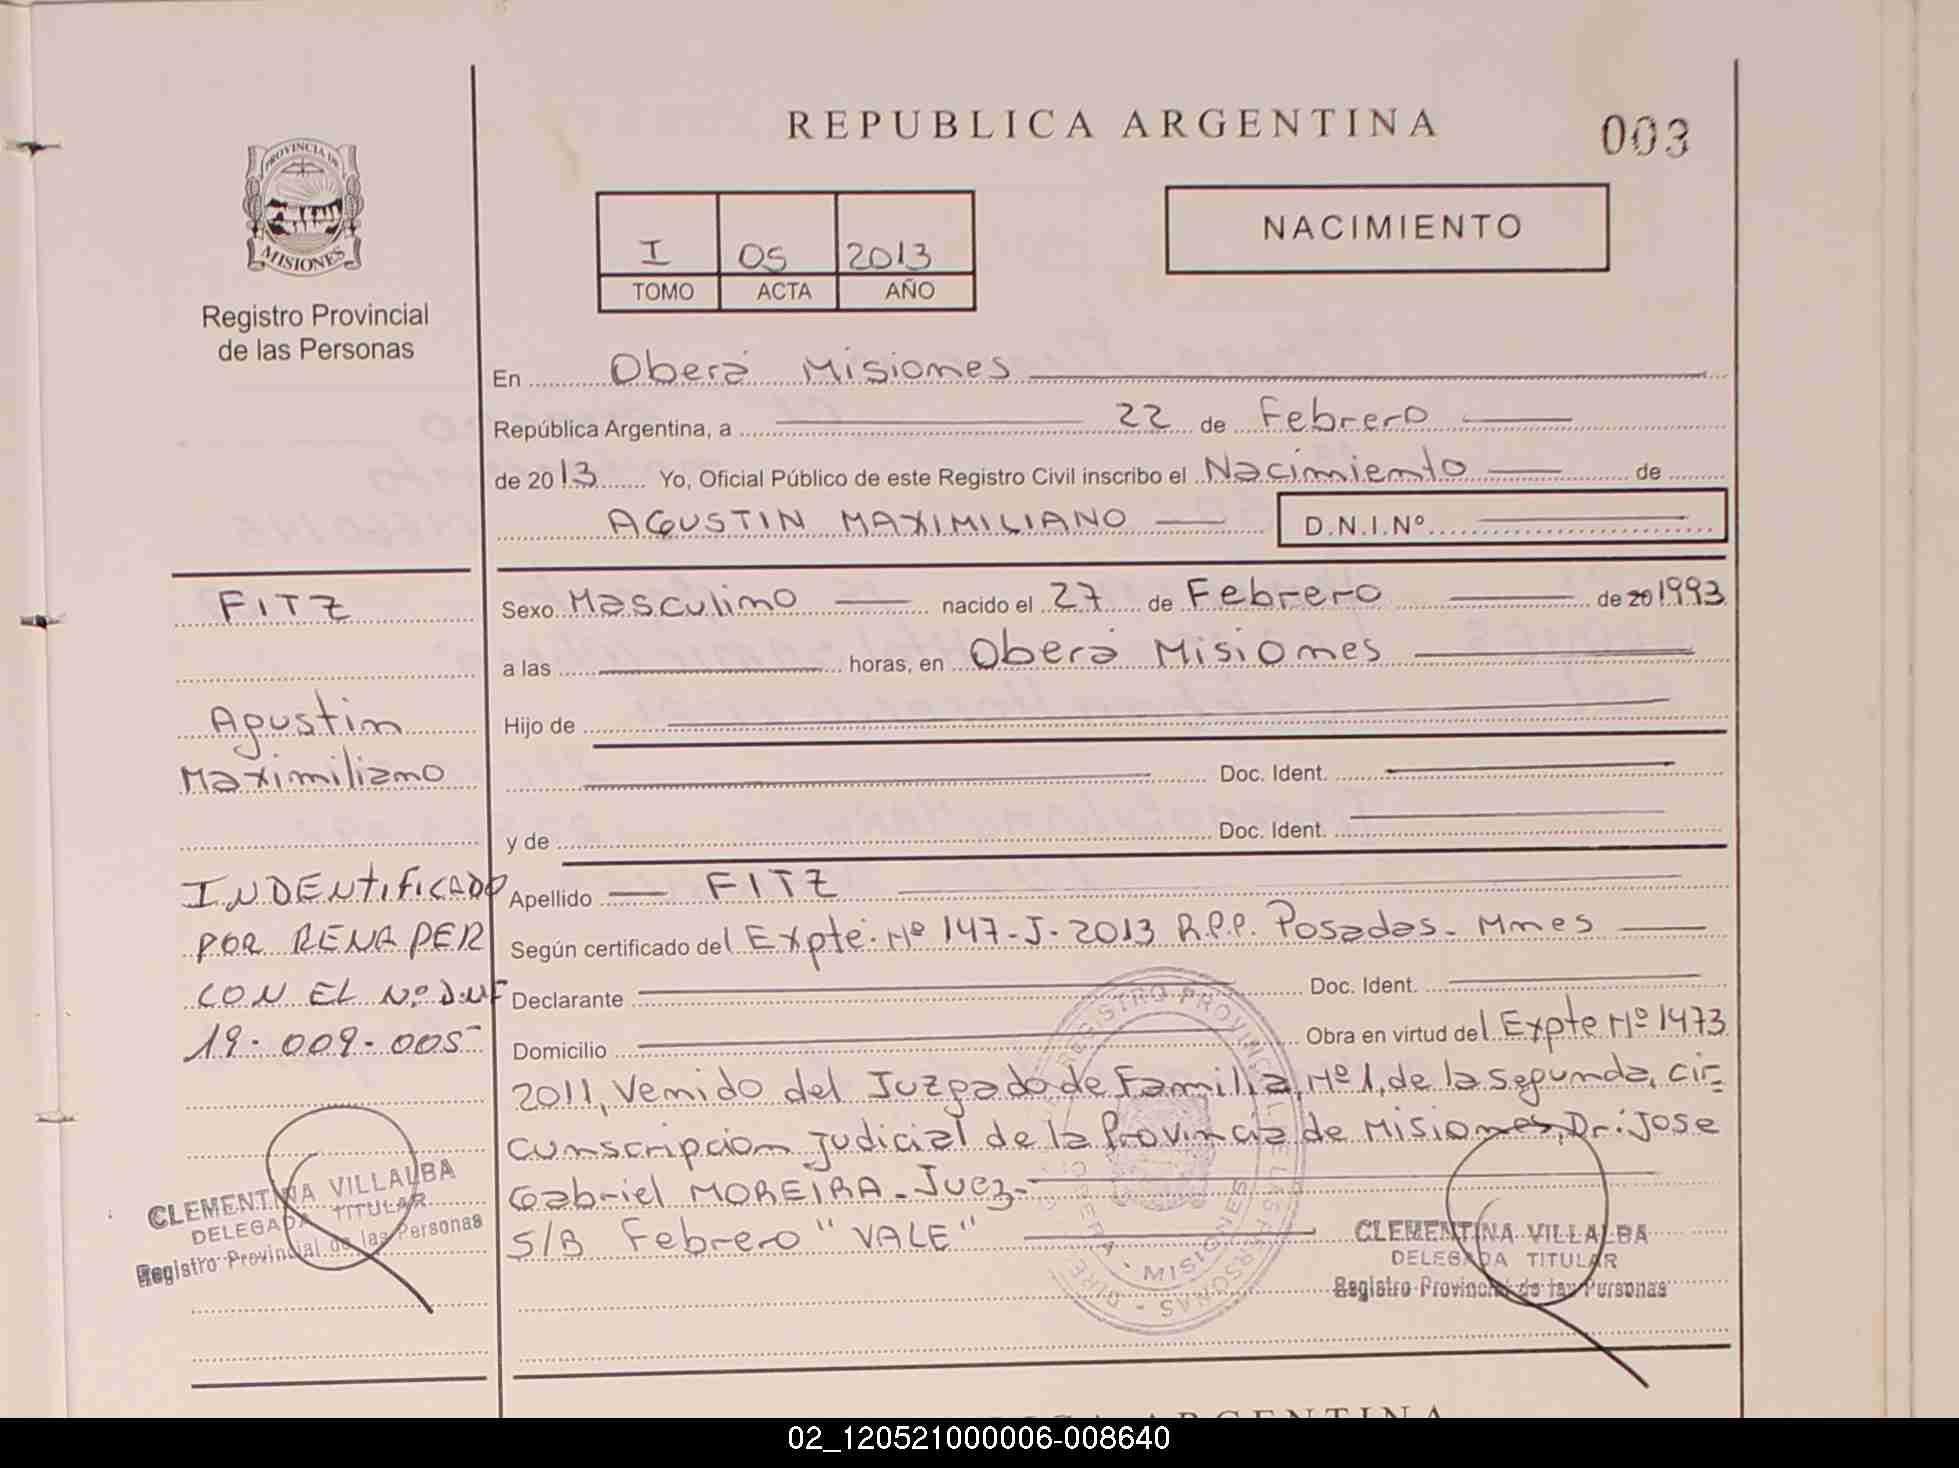 REPUBLICA ARGENTINA
003
PROVINCIA DE
MISIONES
Registro Provincial
de las Personas
I 05 2013
TOMO ACTA AÑO
NACIMIENTO
En Oberá Misiones
República Argentina, a 22 de Febrero
de 2013 Yo, Oficial Público de este Registro Civil inscribo el Nacimiento de
AGUSTIN MAXIMILIANO D.N.I.Nº
FITZ
Agustin
Maximiliano
INDENtifiCADO
POR RENAPER
CON EL Nº D.U
19.009.005
CLEMENTINA VILLALBA
DELEGADA TITULAR
Registro Provincial de las Personas
Sexo Masculino nacido el 27 de Febrero de 20 1993
a las horas, en Oberá Misiones
Hijo de
Doc. Ident.
y de Doc. Ident.
Apellido FITZ
Según certificado del Expte. Nº 147-J-2013 R.P.P. Posadas- Mnes
Declarante Doc. Ident.
Domicilio Obra en virtud del Expte Nº 1473
2011, Venido del Juzgado de Familia, Nº 1, de la segunda, cir=
cunscripcion Judicial de la Provincia de Misiones, Dr: Jose
Gabriel MOREIRA-Juez-
S/B Febrero "VALE"
REGISTRO PROVINCIAL DE LAS PERSONAS
OBERA - MISIONES
CLEMENTINA VILLALBA
DELEGADA TITULAR
Registro Provincial de las Personas
ARGENTINA
02_120521000006-008640